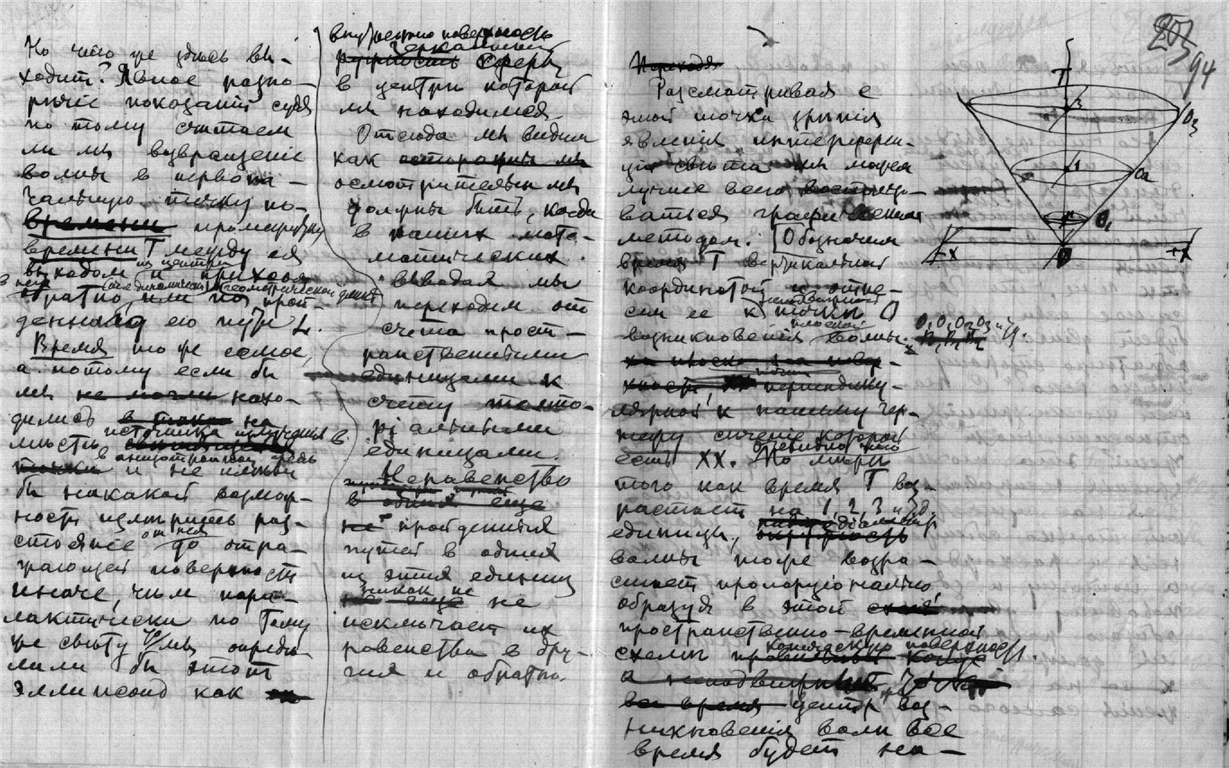 Но чего же здесь вы-
ходит? Явное разно-
речие показаний судя
по тому считаем
ли мы возвращеніе
волны в перво на-
чальную точку по
времени промежутку
времени T между ея
выходом из центра и приходом
в него обратно, или по прой-
денному ею пути L.
Время то же самое,
а потому если бы
мы не могли нахо-
дились в точке на
месте источника излучения в
в анизотропной среде
и не имели
бы никакой возмож-
ность измерить раз-
стояніе от нея до отра-
жающей поверхности
иначе, чем парал-
лактически по тому
же свету, то мы опреде-
лили бы этот
эллипсоид как
внутреннюю поверхность
зеркальной
сферы
в центре которой
мы находимся.
Отсюда мы видим
как
осмотрительны мы
должны быть, когда
в наших мате-
матических
выводах мы
переходим от
счета прост-
ранственными
единицами к
счету темпо-
ральными
единицами.
Неравенство
в одних еще
не пройденных
путей в одних
из этих единиц
никак не
не
исключает их
равенства в дру-
гих и обратно.
Переходя
Разсматривая с
этой точки зрения
явления интерферен-
ции света мы можем
лучше всего воспользо-
ваться графическим
методом. Обозначим
время T вертикальной
координатой и отне-
сем ее к неподвижной точки O
возникновения плоской волны. O, O₁ O₂ O₃ и т.д.
перпендику-
лярной к нашему чер-
тежу сечение которой
есть XX. По мере
того как время T воз-
растает на 1, 2, 3 и т.д.
единицы, диаметр
окружность
волны тоже возра-
стает пропорционально
образуя в этой схеме
пространственно-временной
схемы коническую поверхность.
а неподвижный
все время центр воз-
никновения волн все
время будет на-
253
94
T
3
O₃
O₂
O₁
O
-X
+X